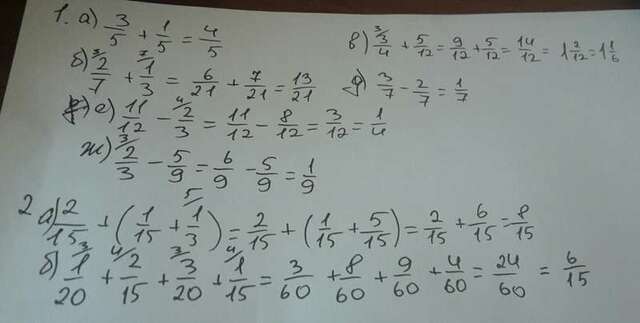 1. а) 3/5 + 1/5 = 4/5
в) ³3/4 + 5/12 = 9/12 + 5/12 = 14/12 = 1 2/12 = 1 1/6
б) ³2/7 + ⁷1/3 = 6/21 + 7/21 = 13/21
д) 3/7 - 2/7 = 1/7
е) 11/12 - ⁴2/3 = 11/12 - 8/12 = 3/12 = 1/4
ж) ³2/3 - 5/9 = 6/9 - 5/9 = 1/9
2 а) 2/15 + (1/15 + ⁵1/3) = 2/15 + (1/15 + 5/15) = 2/15 + 6/15 = 8/15
б) ³1/20 + ⁴2/15 + ³3/20 + ⁴1/15 = 3/60 + 8/60 + 9/60 + 4/60 = 24/60 = 6/15